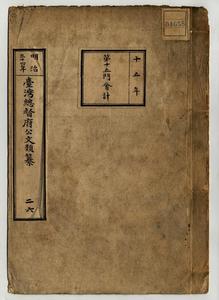 十五年
第十五門會計
明治
臺灣總督府公文類纂
二六